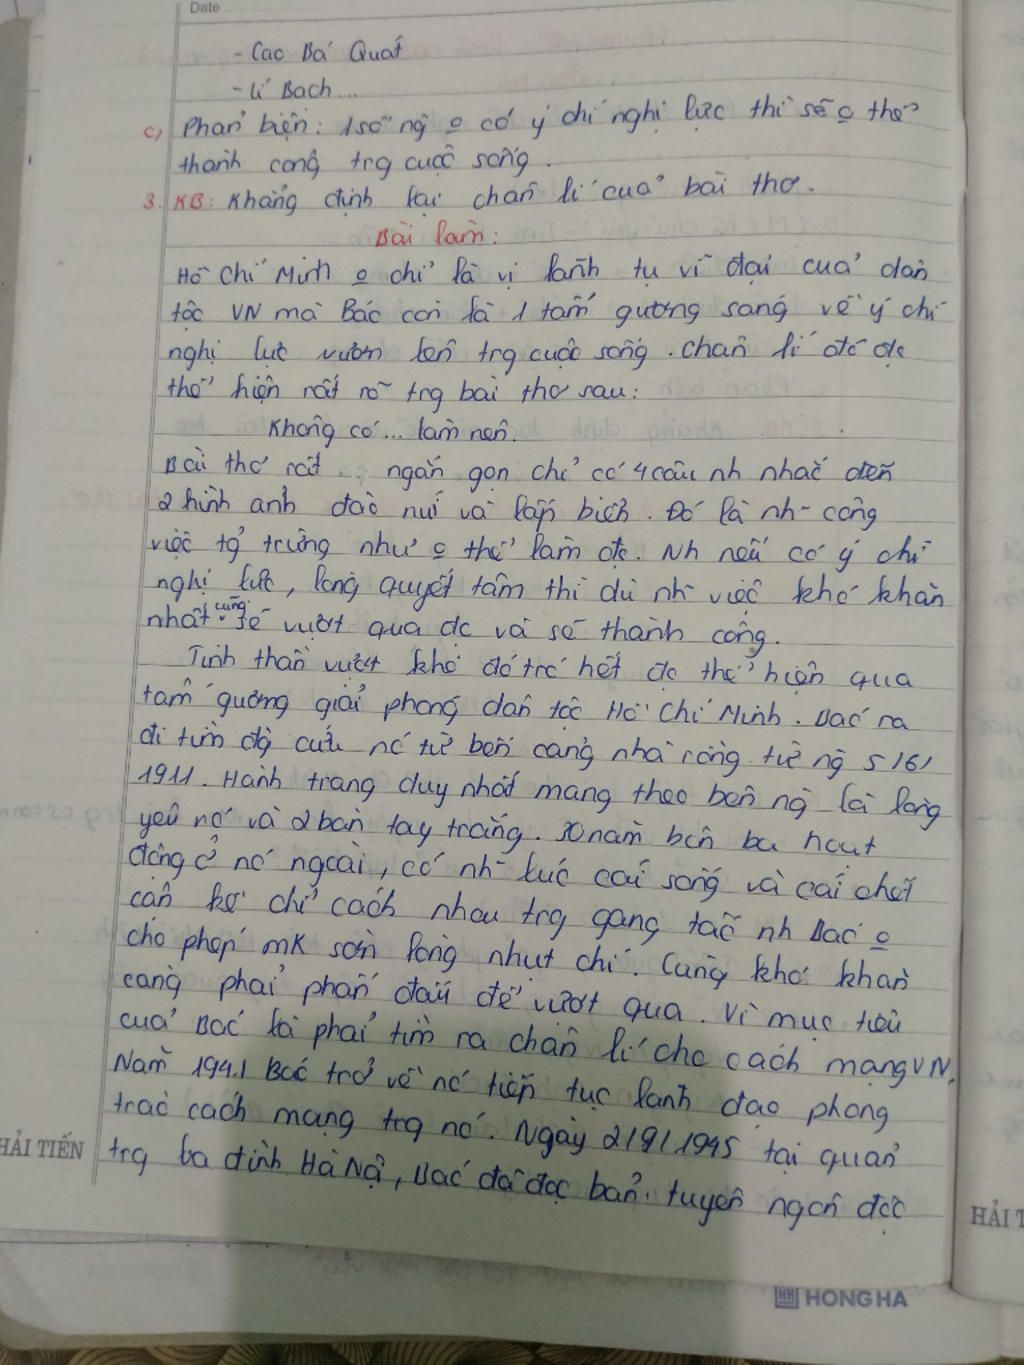 Date
- Cao Bá Quát
- Lí Bạch...
c, Phản biện: 1 số ng̀ o có ý chí nghị lực thì sẽ o thể
thành công trg cuộc sống.
3. KB: Khẳng định lại chân lí của bài thơ.
Bài làm:
Hồ Chí Minh o chỉ là vị lãnh tụ vĩ đại của dân
tộc VN mà Bác còn là 1 tấm gương sáng về ý chí
nghị lực vươn lên trg cuộc sống. Chân lí đó đc
thể hiện rất rõ trg bài thơ sau:
Không có... làm nên.
Bài thơ rất ngắn gọn chỉ có 4 câu nh nhắc đến
2 hình ảnh đào núi và lấp biển. Đó là nh~ công
việc tg̉ trừng như o thể làm đc. Nh nếu có ý chí
nghị lực, lòng quyết tâm thì dù nh~ việc khó khăn
nhất cũng sẽ vượt qua đc và sẽ thành công.
Tinh thần vượt khó đó trc hết đc thể hiện qua
tấm gương giải phóng dân tộc Hồ Chí Minh. Bác ra
đi tìm đg̀ cứu nc từ bến cảng nhà rồng từ ng̀ 5/6/
1911. Hành trang duy nhất mang theo bên ng̀ là lòng
yêu nc và 2 bàn tay trắng. 30 năm bôn ba hoạt
động ở nc ngoài, có nh~ lúc cái sống và cái chết
cận kề chỉ cách nhau trg gang tấc nh Bác o
cho phép mk sờn lòng nhụt chí. Càng khó khăn
càng phải phấn đấu để vượt qua. Vì mục tiêu
của Bác là phải tìm ra chân lí cho cách mạng VN.
Năm 1941 Bác trở về nc tiếp tục lãnh đạo phong
trào cách mạng trg nc. Ngày 2/9/1945 tại quản
HẢI TIẾN
trg ba đình Hà Nội, Bác đã đọc bản tuyên ngôn độc
HẢI T
HONG HA